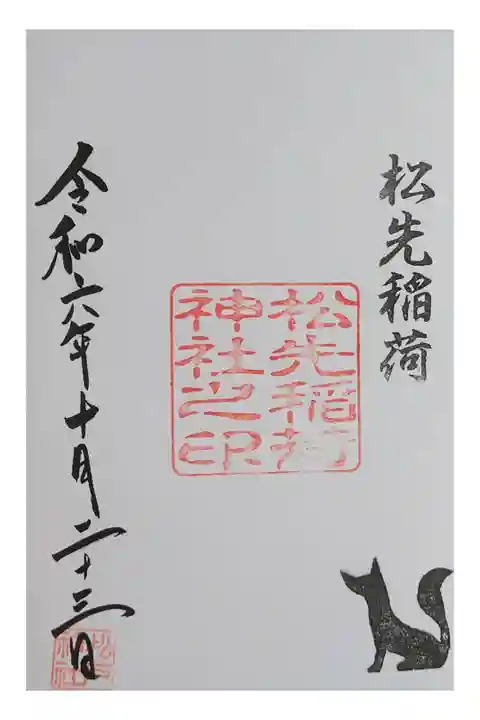 松先稲荷
松先稲荷
神社之印
令和六年十月二十三日